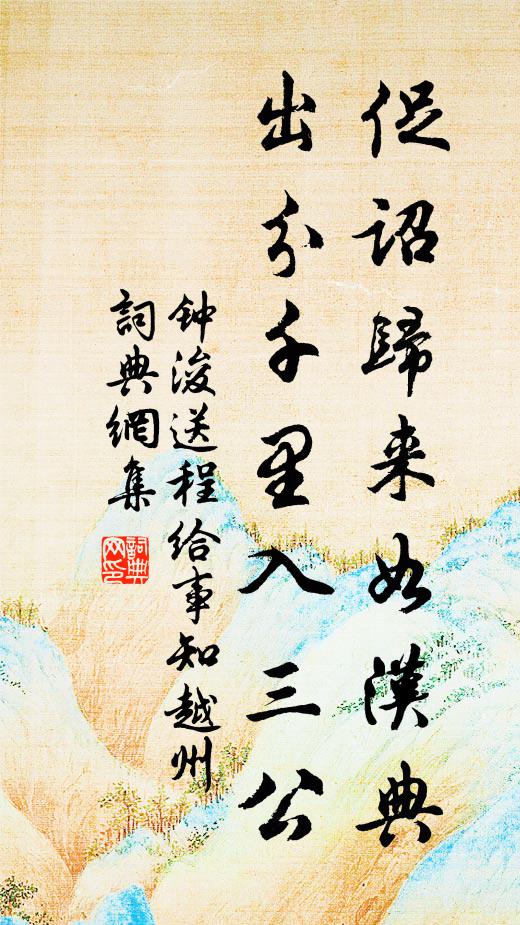 促詔歸来如漢典
出分千里入三公
钟浚送程给事知越州
詞典網集
詞典
网印